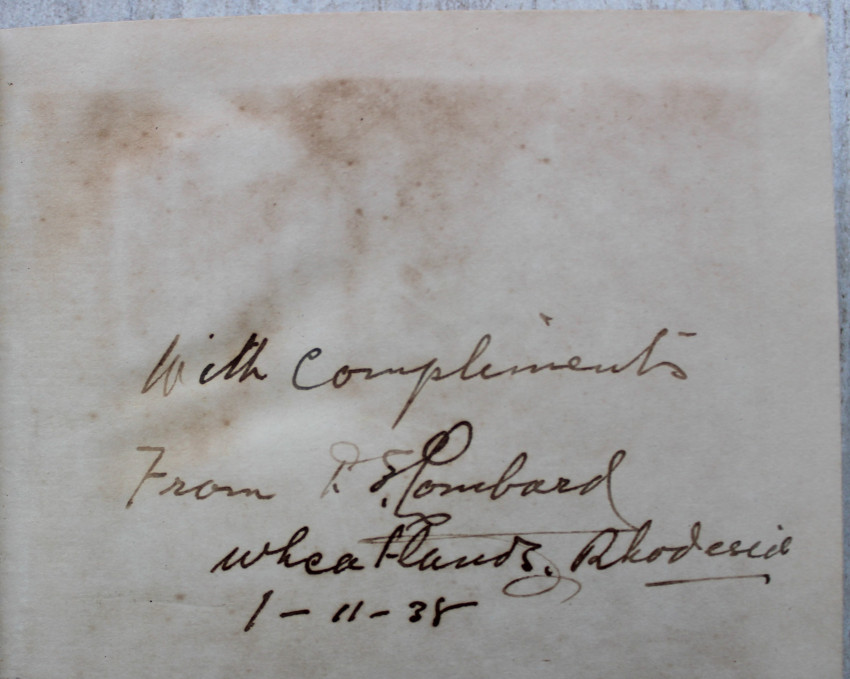 With compliments
From P. S. Lombard
Wheatlands. Rhodesia
1-11-38